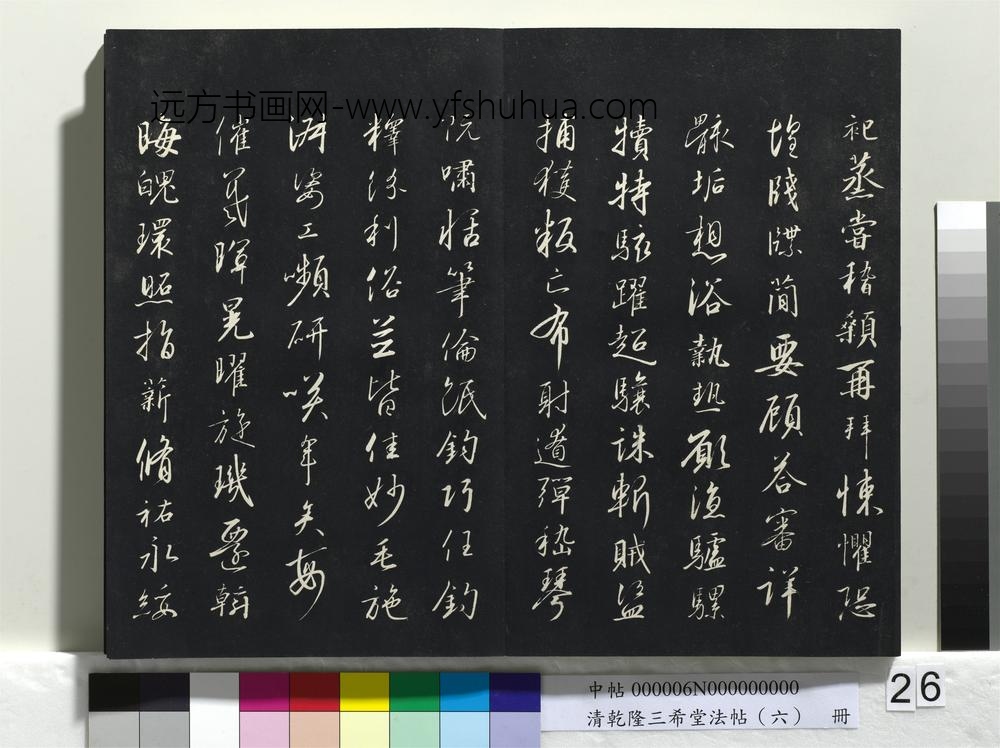 祀蒸嘗稽顙再拜悚懼恐
惶牋牒簡要顧答審詳
骸垢想浴執熱願涼驢騾
犢特駭躍超驤誅斬賊盜
捕獲叛亡布射遼彈嵇琴
阮嘯恬筆倫紙鈞巧任釣
釋紛利俗並皆佳妙毛施
淑姿工嚬研咲年矢每
催羲暉晃曜旋璣斡
晦魄環照指薪脩祜永綏
远方书画网-www.yfshuhua.com
中帖 000006N000000000
清乾隆三希堂法帖（六） 冊
26